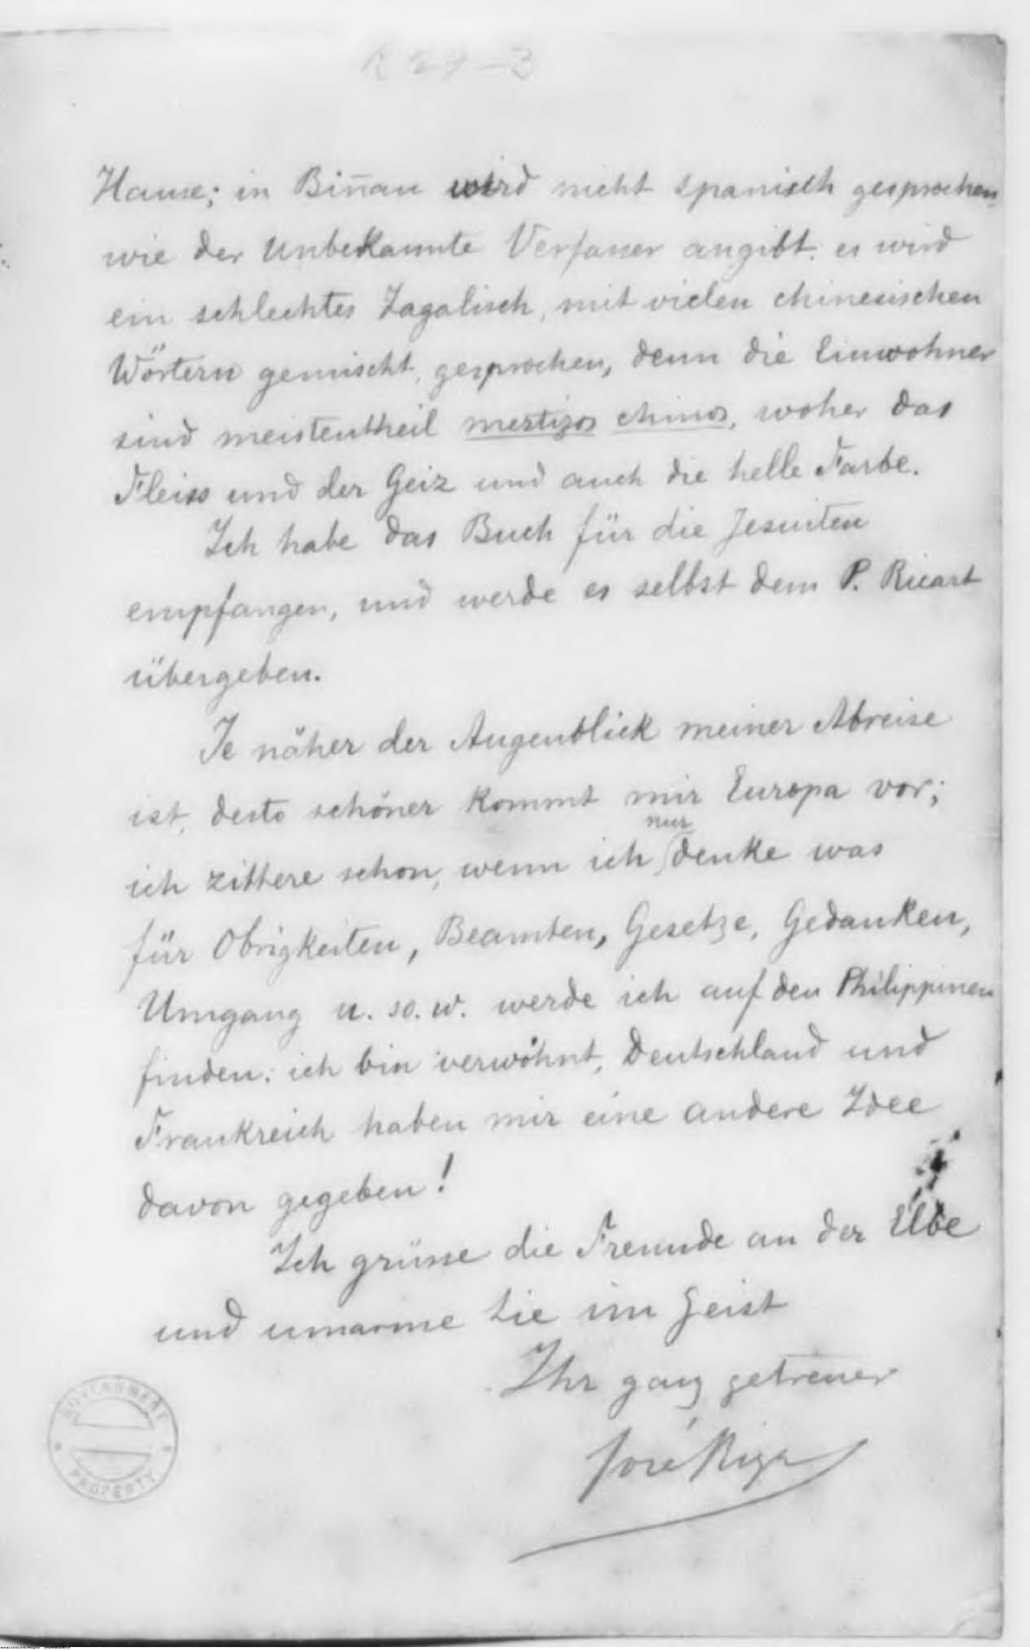 R 29-3
Hause; in Biñan wird nicht spanisch gesprochen,
wie der Unbekannte Verfasser angibt. es wird
ein schlechtes Tagalisch, mit vielen chinesischen
Wörtern gemischt, gesprochen, denn die Einwohner
sind meistentheil mestizos chinos, woher das
Fleiss und der Geiz und auch die helle Farbe.
Ich habe das Buch für die Jesuiten
empfangen, und werde es selbst dem P. Ricart
übergeben.
Je näher der Augenblick meiner Abreise
ist, desto schöner kommt mir Europa vor;
ich zittere schon, wenn ich nur denke was
für Obrigkeiten, Beamten, Gesetze, Gedanken,
Umgang u. so. w. werde ich auf den Philippinen
finden: ich bin verwöhnt, Deutschland und
Frankreich haben mir eine andere Idee
davon gegeben!
Ich grüsse die Freunde an der Elbe
und umarme Sie im Geist
Ihr ganz getreuer
José Rizal
GOVERNMENT
PROPERTY